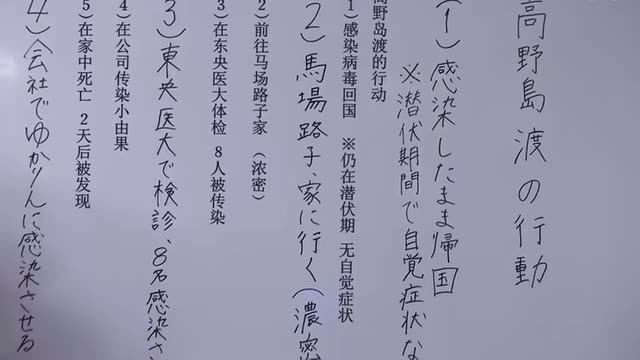 高野島渡の行動
(1)感染したまま帰国
※潜伏期間で自覚症状な
高野岛渡的行动
1）感染病毒回国 ※仍在潜伏期 无自觉症状
2）馬場路子、家に行く(濃密
2）前往马场路子家 （浓密）
3）在东央医大体检 8人被传染
3）東央医大で検診、8名感染さ
4）在公司传染小由果
5）在家中死亡 2天后被发现
4）会社でゆかりんに感染させる